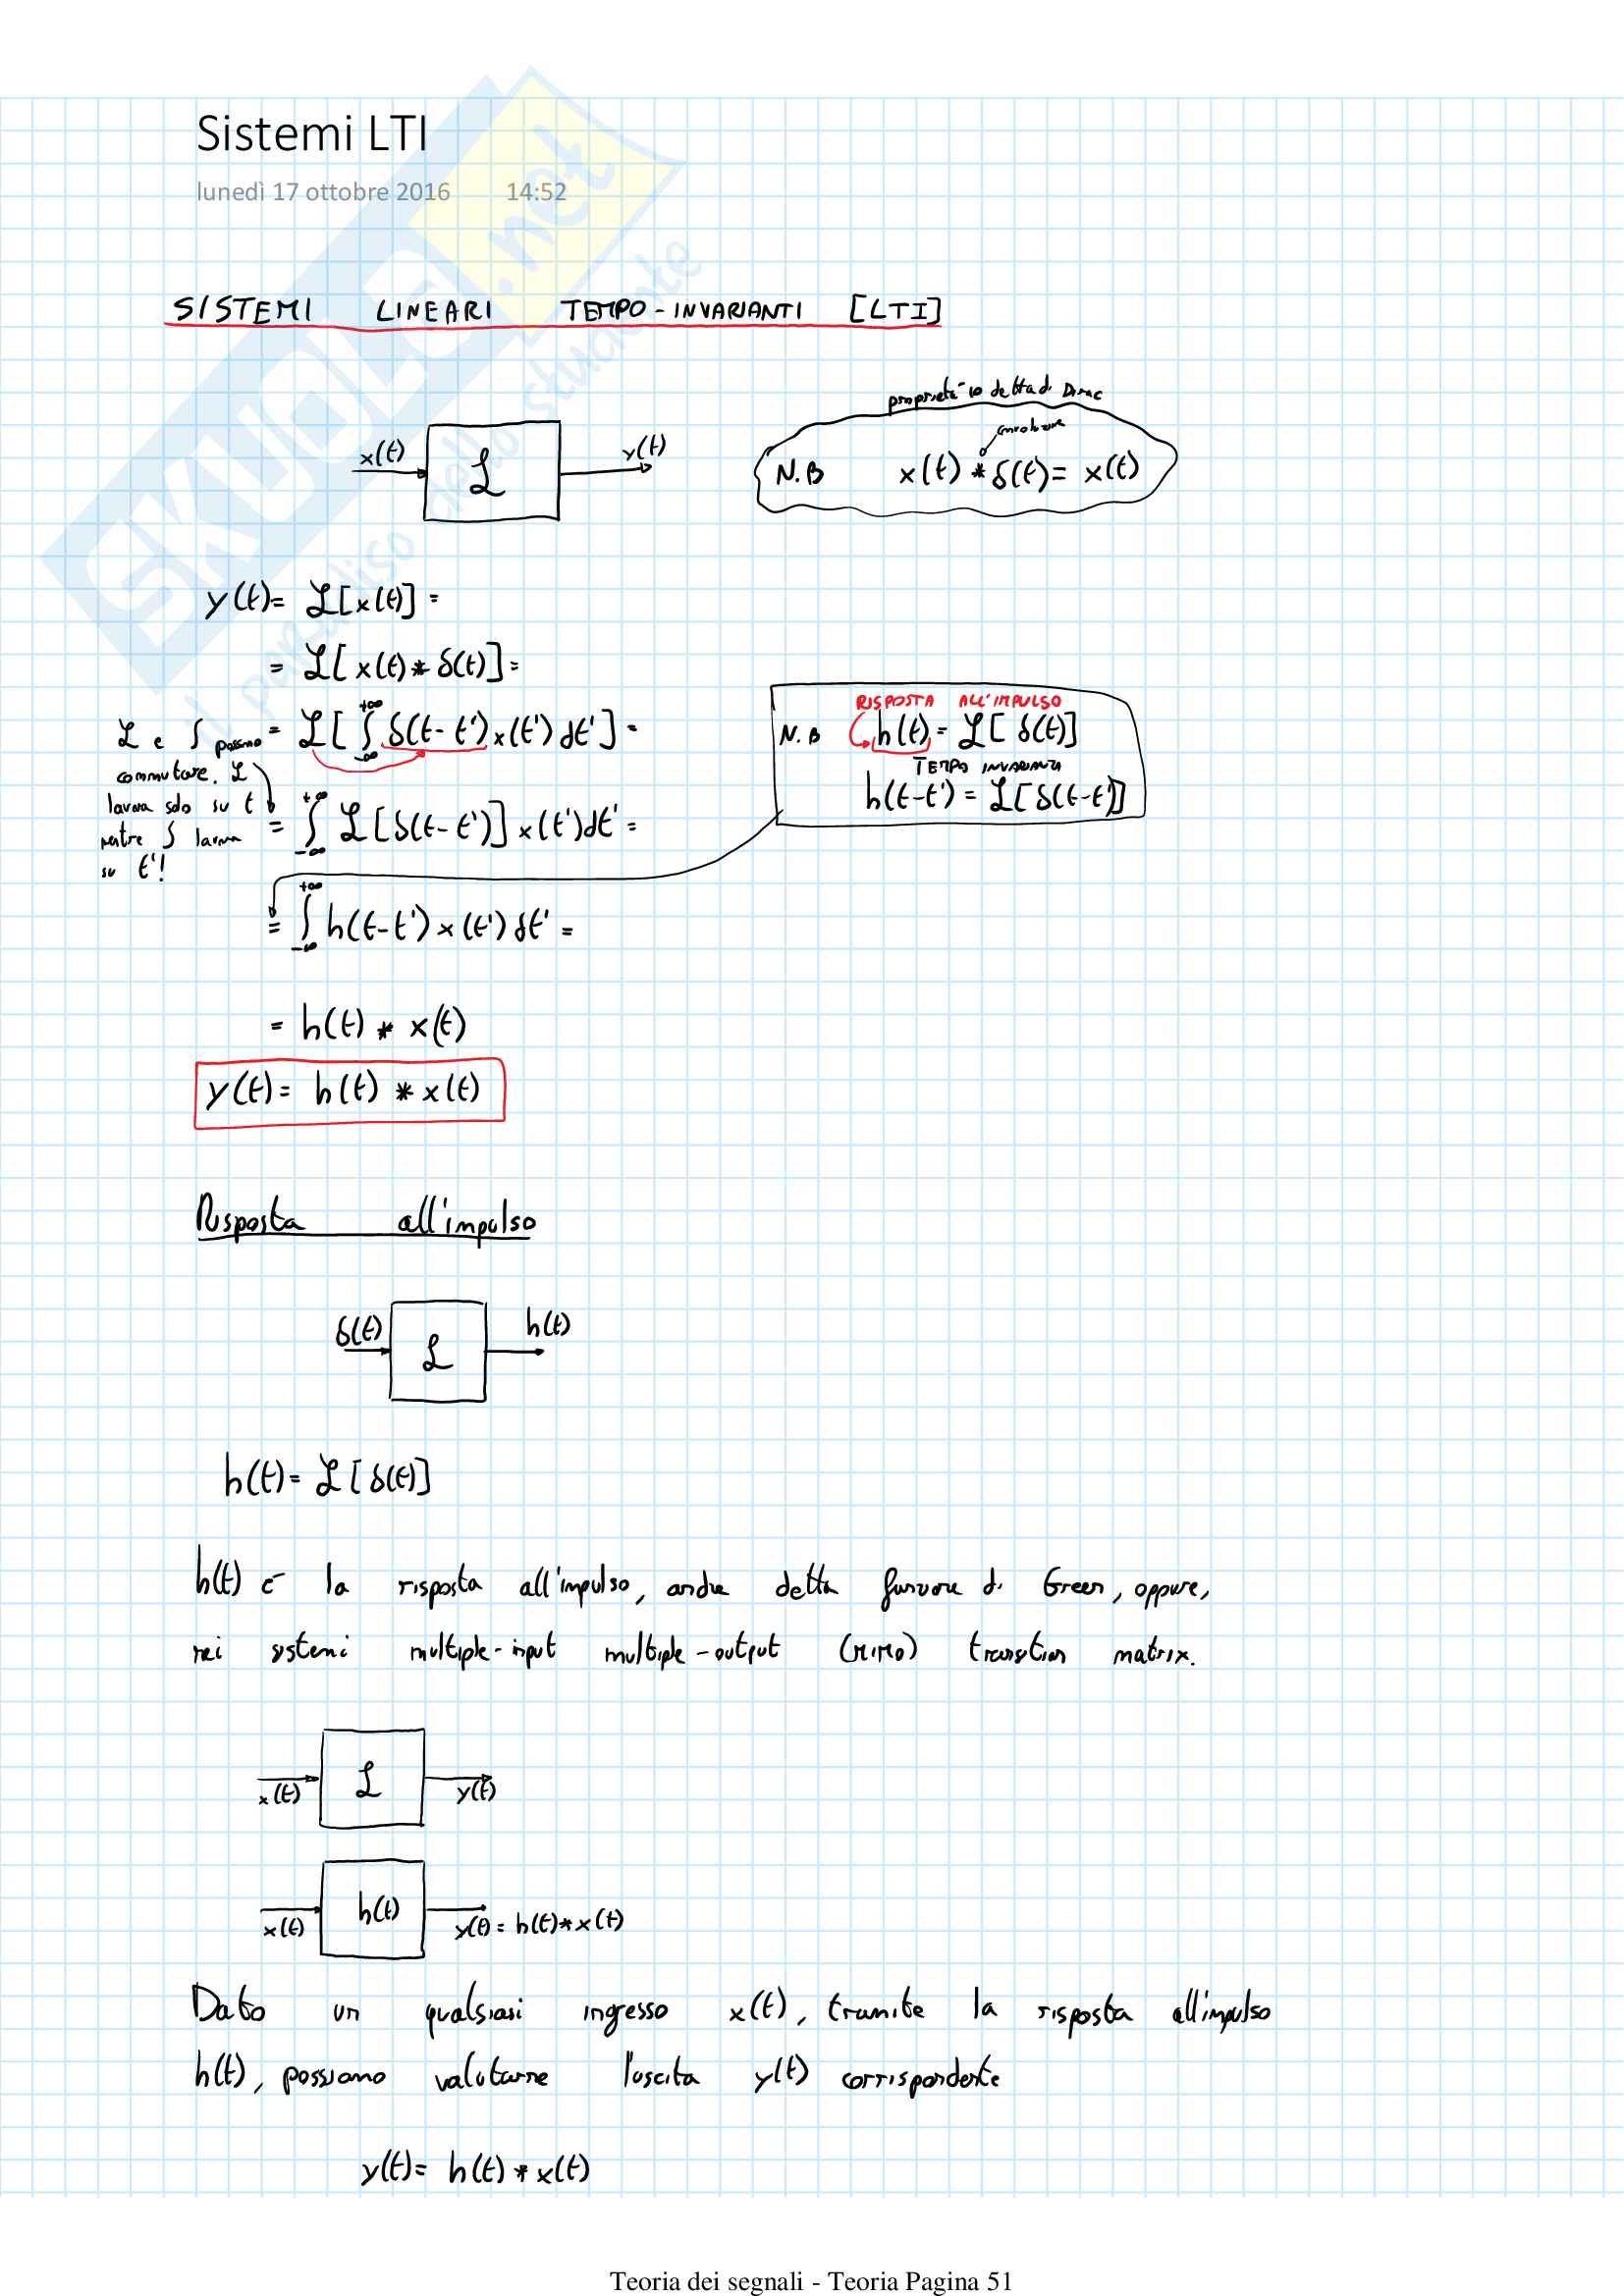 Sistemi LTI
lunedì 17 ottobre 2016 14:52
SKUOLA.net
il paradiso dello studente
SISTEMI LINEARI TEMPO-INVARIANTI [LTI]
x(t) ℒ y(t)
proprietà delta di Dirac
convoluzione
N.B x(t) * δ(t) = x(t)
y(t) = ℒ[x(t)] =
= ℒ[x(t) * δ(t)] =
ℒ e ∫ possono
commutare. ℒ
lavora solo su t
mentre ∫ lavora
su t'!
= ℒ[∫_{-∞}^{+∞} δ(t-t') x(t') dt'] =
= ∫_{-∞}^{+∞} ℒ[δ(t-t')] x(t') dt' =
RISPOSTA ALL'IMPULSO
N.B h(t) = ℒ[δ(t)]
TEMPO INVARIANZA
h(t-t') = ℒ[δ(t-t')]
= ∫_{-∞}^{+∞} h(t-t') x(t') dt' =
= h(t) * x(t)
y(t) = h(t) * x(t)
Risposta all'impulso
δ(t) ℒ h(t)
h(t) = ℒ[δ(t)]
h(t) è la risposta all'impulso, anche detta funzione di Green, oppure,
nei sistemi multiple-input multiple-output (MIMO) transition matrix.
x(t) ℒ y(t)
x(t) h(t) y(t) = h(t) * x(t)
Dato un qualsiasi ingresso x(t), tramite la risposta all'impulso
h(t), possiamo valutarne l'uscita y(t) corrispondente
y(t) = h(t) * x(t)
Teoria dei segnali - Teoria Pagina 51